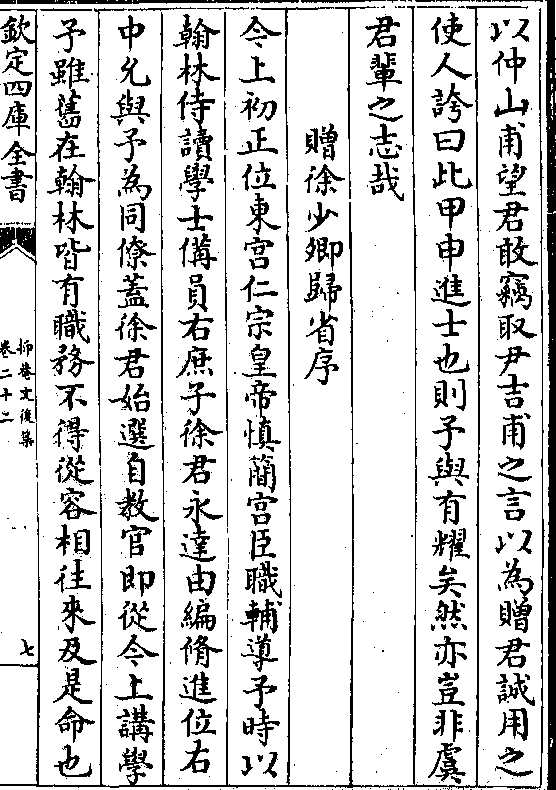 以仲山甫望君敢竊取尹吉甫之言以為贈君誠用之
使人誇曰此甲申進士也則予與有耀矣然亦豈非虞
君輩之志哉
贈徐少卿歸省序
今上初正位東宫仁宗皇帝慎簡宫臣職輔導予時以
翰林侍讀學士備員右庶子徐君永達由編脩進位右
中允與予為同僚蓋徐君始選自教官即從今上講學
予雖舊在翰林皆有職務不得從容相往來及是命也
欽定四庫全書
抑菴文後集
卷二十二
七